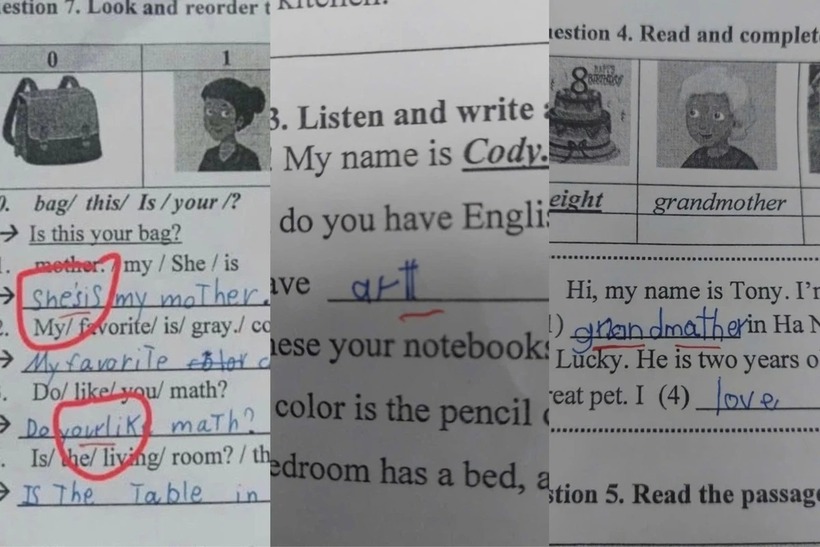 estion 7. Look and reorder t
0 1
0. bag/ this/ Is / your /?
→ Is this your bag?
1. mother. / my / She / is
→ She'sis my moTher.
2. My/ favorite/ is/ gray./ co
→ My favoriTe color c
. Do/ like/ you/ math?
→ Do yourlik maTh?
. Is/ the/ living/ room? / th
→ IS The Table in
KITCHEN.
3. Listen and write a
My name is Cody.
do you have Englis
ave artt
hese your notebooks
color is the pencil c
edroom has a bed, a
estion 4. Read and complete
8
HAPPY BIRTHDAY
eight grandmother
Hi, my name is Tony. I'm
1) grandmather in Ha N
Lucky. He is two years o
reat pet. I (4) love
stion 5. Read the passage